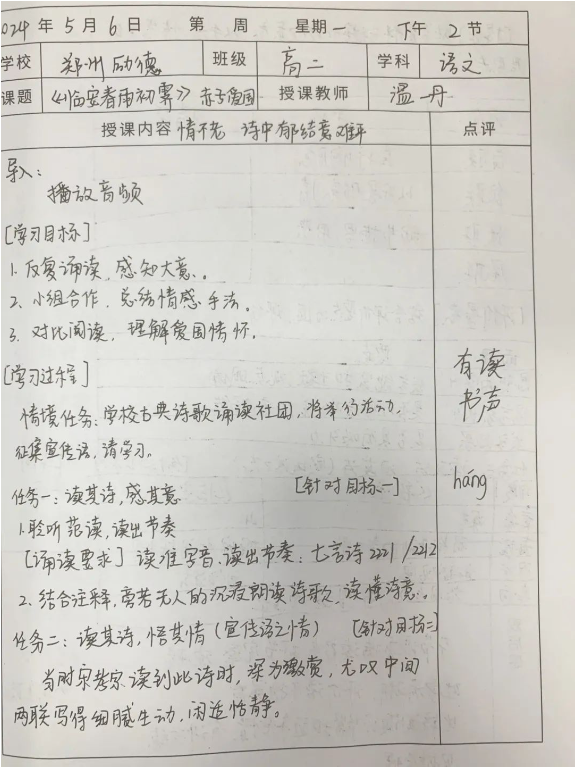 024 年 5 月 6 日 第 周 星期一 下午 2 节
学校 郑州励德 班级 高二 学科 语文
课题 《临安春雨初霁》 赤子爱国 授课教师 温丹
授课内容 情不老 诗中郁结意难平 点评
导入:
播放音频
[学习目标]
1. 反复诵读, 感知大意。
2. 小组合作, 总结情感手法。
3. 对比阅读, 理解爱国情怀。
[学习过程]
有读
书声
情境任务: 学校古典诗歌诵读社团, 将举行活动,
征集宣传语, 请学习。
háng
任务一: 读其诗, 感其意 [针对目标一]
1. 聆听范读, 读出节奏
[诵读要求] 读准字音、读出节奏: 七言诗 2221 / 2212
2. 结合注释, 旁若无人的沉浸朗读诗歌, 读懂诗意。
任务二: 读其诗, 悟其情 (宣传语之情) [针对目标二]
当时宋孝宗读到此诗时, 深为激赏, 尤叹中间
两联写得细腻生动, 闲适恬静。